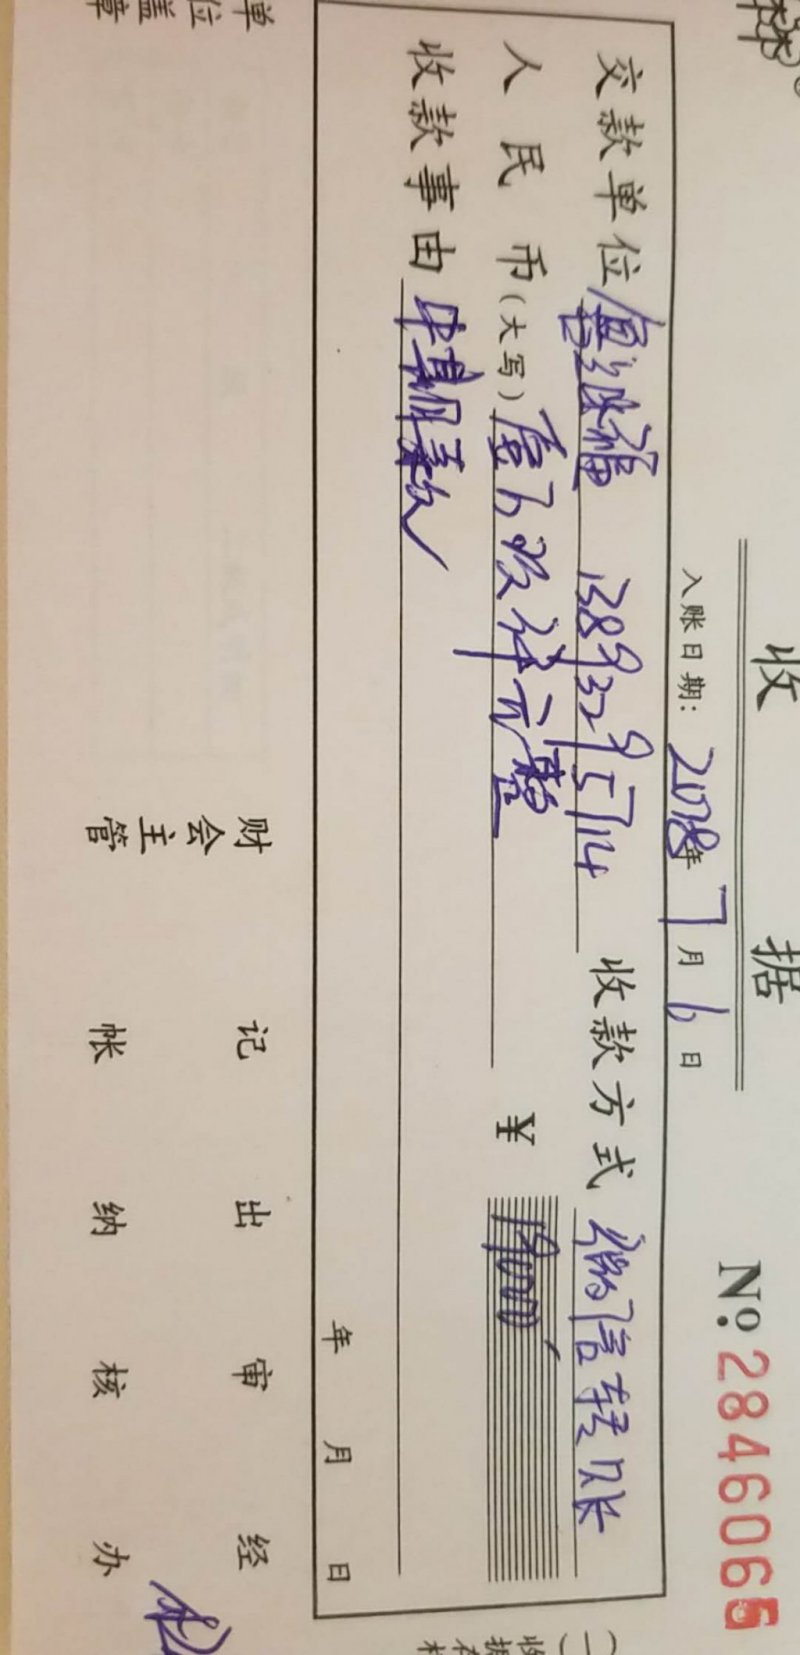 收 据
No. 28460665
入账日期: 2018年7月6日
交款单位 鲁继福 13893295714 收款方式 微信转账
人民币(大写) 壹万玖仟元整 ¥ 19000
收款事由 中期款
年 月 日
单位盖章 财会主管 记帐 出纳 审核 经办